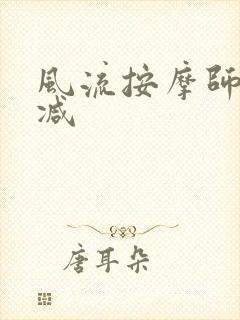 風流按摩師
减
唐耳朵